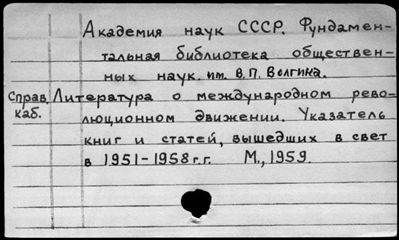 Академия наук СССР. Фундамен-
тальная библиотека обществен-
ных наук им. В.П. Волгина.
Справ. Литература о международном рево-
каб. люционном движении. Указатель
книг и статей, вышедших в свет
в 1951-1958 г.г. М., 1959.